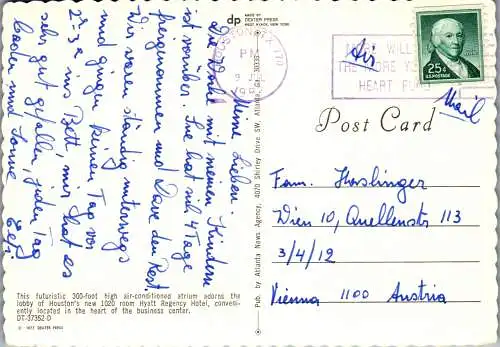 Meine Lieben.
Die Woche mit meinen Kindern
ist vorüber. Eve hat sich 4 Tage
freigenommen und Dave den Rest.
Wir waren ständig unterwegs
und gingen keinen Tag vor
2-3 ins Bett, mir hat es
sehr gut gefallen, jeden Tag
baden und Sonne.
This futuristic 300-foot high air-conditioned atrium adorns the
lobby of Houston's new 1020 room Hyatt Regency Hotel, conveni-
ently located in the heart of the business center.
DT-37352-D
© 1972 DEXTER PRESS
dp
MADE BY
DEXTER PRESS
WEST NYACK, NEW YORK
Pub. by Atlanta News Agency, 4020 Shirley Drive SW, Atlanta, GA 30336
HOUSTON, TX 770
PM
9 JUL
HEART FUND
25¢
U.S. POSTAGE
Air
Mail
Post Card
Fam. Haslinger
Wien 10, Quellenstr 113
3/4/12
Vienna 1100 Austria